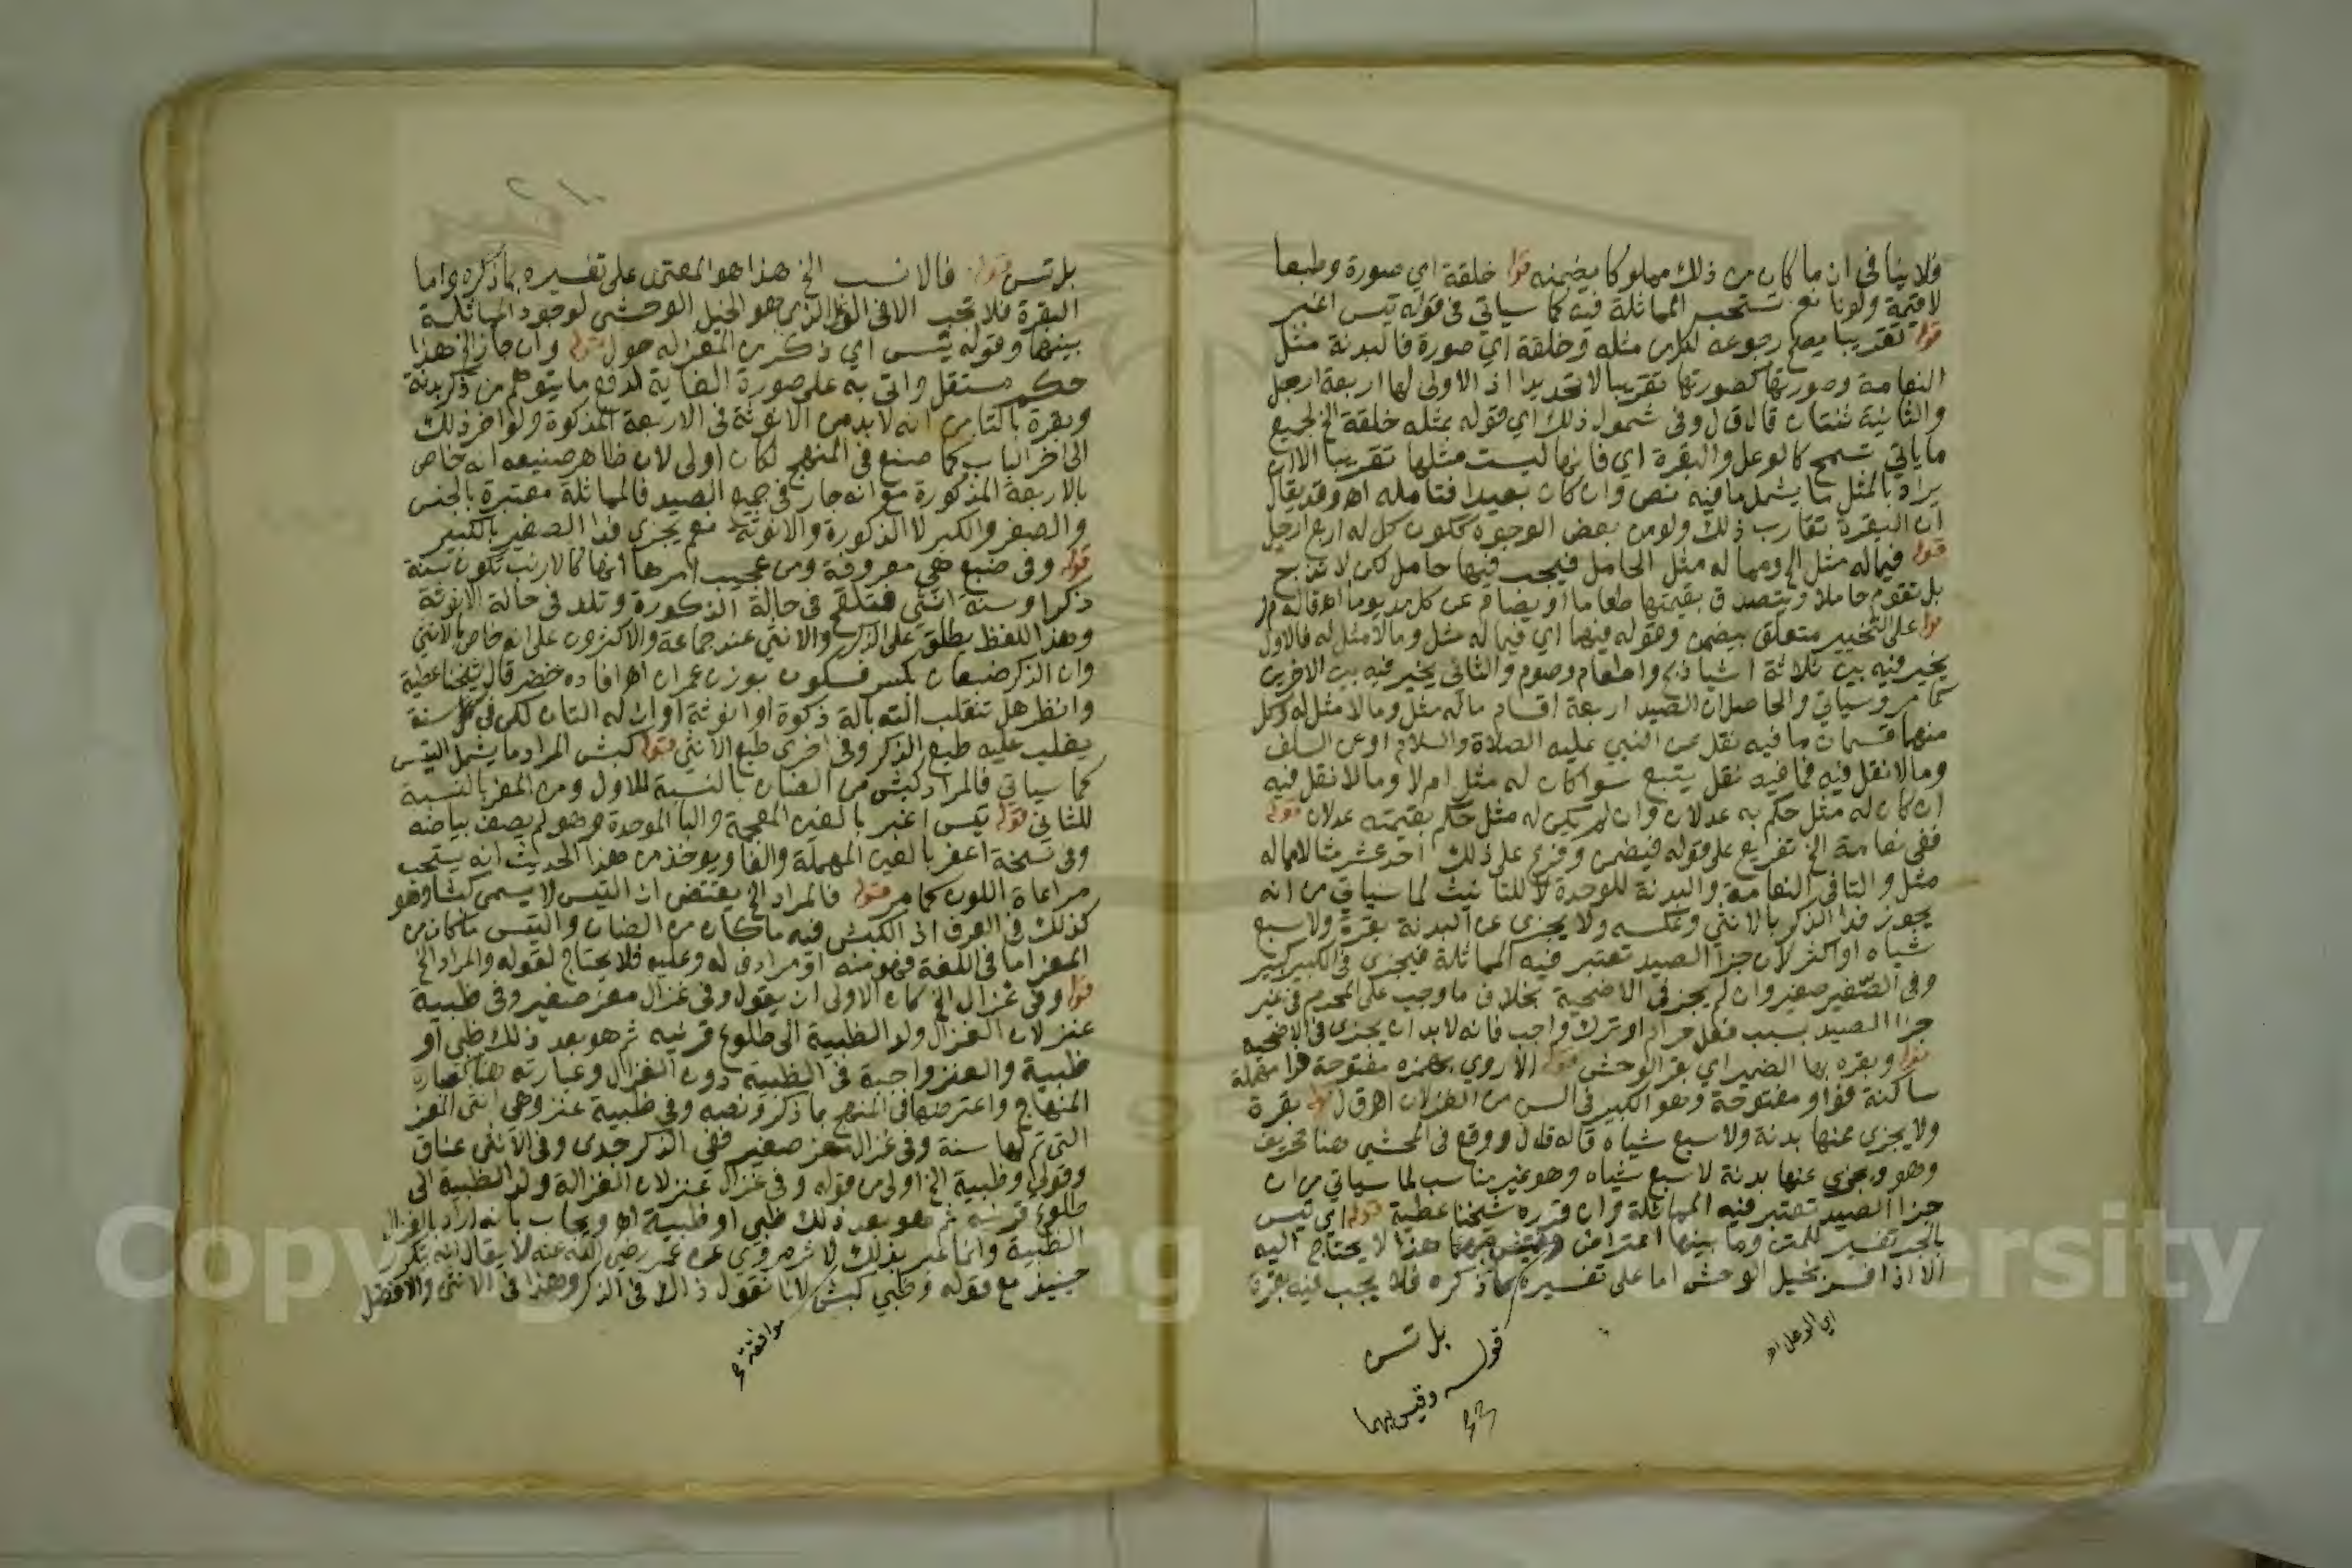 فلا ينافي ان ما كان من ذلك مملوكا يضمنه قوله خلقة اي صورة وطبعا
لا قيمة ولونا نعم تستحب المماثلة فيه كما سياتي في قوله تيس اغبر
قوله تقريبا يصح رجوعه لكل من مثله وخلقة اي صورة فالبدنة مثل
النعامة وصورتها كصورتها تقريبا لا تحديدا اذ الاولى لها اربعة ارجل
والثانية ثنتان قال ق ل وفي شمول ذلك اي قوله بمثله خلقة الخ لجميع
ما ياتي تسمح كالوعل والبقرة اي فانها ليست مثلها تقريبا الا ان
يراد بالمثل ما يشمل ما فيه نص وان كان بعيدا فتامله اهـ وقد يقال
ان البقرة تقارب ذلك ولو من بعض الوجوه ككون كل له اربع ارجل
قوله فيما له مثل الخ ومما له مثل الحامل فيجب فيها حامل لكن لا تذبح
بل تقوم حاملا ويتصدق بقيمتها طعاما او يصام عن كل مد يوما اهـ قاله م ر
قوله على التخيير متعلق بيضمن وقوله فيهما اي فيما له مثل وما لا مثل له فالاول
يخير فيه بين ثلاثة اشيا ذبح واطعام وصوم والثاني يخير فيه بين الاخرين
كما مر وسياتي والحاصل ان الصيد اربعة اقسام ما له مثل وما لا مثل له وكل
منهما قسمان ما فيه نقل عن النبي عليه الصلاة والسلام او عن السلف
وما لا نقل فيه فما فيه نقل يتبع سوا كان له مثل ام لا وما لا نقل فيه
ان كان له مثل حكم به عدلان وان لم يكن له مثل حكم بقيمته عدلان قوله
ففي نعامة الخ تفريع على قوله فيضمن وفرع على ذلك احد عشر مثالا مما له
مثل والتا في النعامة والبدنة للوحدة لا للتانيث لما سياتي من انه
يجوز فدا الذكر بالانثى وعكسه ولا يجزى عن البدنة بقرة ولا سبع
شياه او اكثر لان جزا الصيد تعتبر فيه المماثلة فيجزى في الكبير كبير
وفي الصغير صغير وان لم يجز في الاضحية بخلاف ما وجب على المحرم في غير
جزا الصيد بسبب فعل حرام او ترك واجب فانه لا بد ان يجزى في الاضحية
قوله وبقره بها الضمير اي بقر الوحش قوله الاروي بهمزة مفتوحة فرا مهملة
ساكنة فواو مفتوحة وهو الكبير في السن من الغزلان اهـ ق ل قوله بقرة
ولا يجزي عنها بدنة ولا سبع شياه قاله ق ل ووقع في المحشي هنا تحريف
وهو ويجزي عنها بدنة لا سبع شياه وهو غير مناسب لما سياتي من ان
جزا الصيد تعتبر فيه المماثلة وان قرره شيخنا عطية قوله اي تيس
بالجر تفسير للمتن وما بينهما اعتراض هذا لا يحتاج اليه
الا اذا فسر بخيل الوحش اما على تفسيره بما ذكره فلا يجب فيه بقرة
اي الوعل اهـ
بل تيس
قوله وقيس بهما
بل تيس قوله فالانسب الخ هذا هو المعتمد على تفسيره بما ذكره واما
البقرة فلا تجب الا في الذي هو الخيل الوحشي لوجود المماثلة
بينهما وقوله تيس اي ذكر من المعز له حول قوله وان جاز الخ هذا
حكم مستقل واتى به على صورة الغاية لدفع ما يتوهم من ذكر بدنة
وبقرة بالتا من انه لا بد من الانوثة في الاربعة المذكورة ولو اخر ذلك
الى اخر الباب كما صنع في المنهج لكان اولى لان ظاهر صنيعه انه خاص
بالاربعة المذكورة مع انه جار في جميع الصيد فالمماثلة معتبرة بالجنس
والصغر والكبر لا الذكورة والانوثة نعم يجزي فدا الصغير بالكبير
قوله وفي ضبع هي معروفة ومن عجيب امرها انها كالارنب تكون سنة
ذكرا وسنة انثى فتلقح في حالة الذكورة وتلد في حالة الانوثة
وهذا اللفظ يطلق على الذكر والانثى عند جماعة والاكثرون على انه خاص بالانثى
وان الذكر ضبعان بكسر فسكون بوزن عمران اهـ افاده خضر قال شيخنا عطية
وانظر هل تنقلب الته بالة ذكوة او انوثة او ان له التان لكن في كل سنة
يغلب عليه طبع الذكر وفي اخرى طبع الانثى قوله كبش المراد ما يشمل التيس
كما سياتي فالمراد كبش من الضان بالنسبة للاول ومن المعز بالنسبة
للثاني قوله تيس اغبر بالغين المعجمة والبا الموحدة وهو لم يصف بياضه
وفي نسخة اعفر بالعين المهملة والفا ويوخذ من هذا الحديث انه يستحب
مراعاة اللون كما مر قوله فالمراد الخ يقتضي ان التيس لا يسمى كبشا وهو
كذلك في العرف اذ الكبش فيه ما كان من الضان والتيس ما كان من
المعز اما في اللغة فهو منه او مرادف له وعليه فلا يحتاج لقوله والمراد الخ
قوله وفي غزال الخ كان الاولى ان يقول وفي غزال معز صغير وفي ظبية
عنز لان الغزال ولد الظبية الى طلوع قرنيه ثم هو بعد ذلك ظبي او
ظبية والعنز واجبة في الظبية دون الغزال وعبارته هنا كعبارة
المنهاج واعترضها في المنهج بما ذكر ونصه وفي ظبية عنز وهي انثى المعز
التي تم لها سنة وفي غزال معز صغير ففي الذكر جدى وفي الانثى عناق
وقولي وظبية الخ اولى من قوله وفي غزال عنز لان الغزالة ولد الظبية الى
طلوع قرنيه ثم هو بعد ذلك ظبي او ظبية اهـ ويجاب بانه اراد بالغزال
الظبية وانما عبر بذلك لاثر مروي عن عمر رضي الله عنه لا يقال انه يتكرر
حينيذ مع قوله وظبي كبش لانا نقول ذاك في الذكر وهذا في الانثى والافضل
موافقة